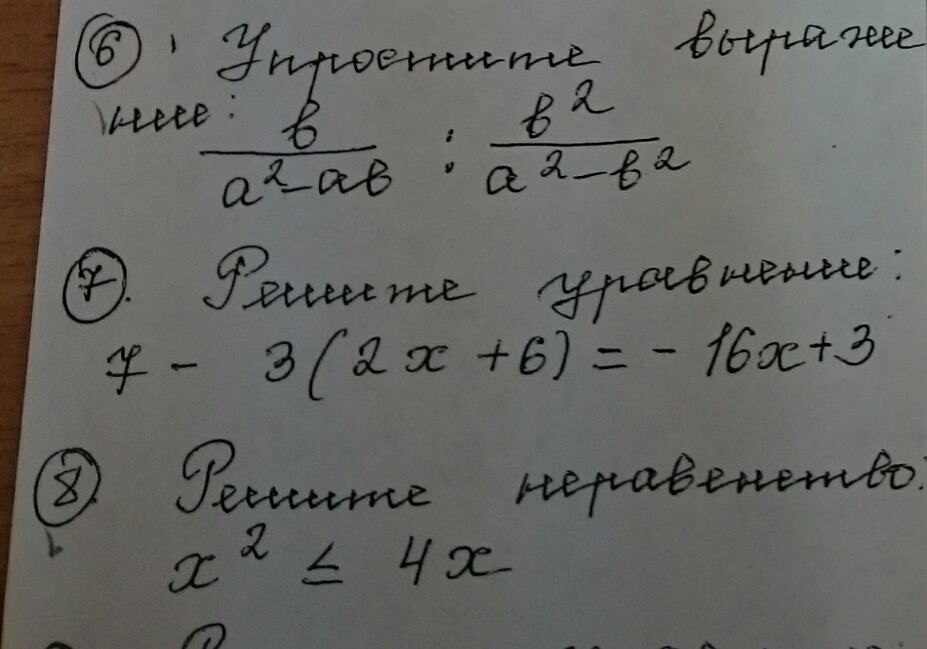 6. Упростите выраже
ние: в/(a²-aв) : в²/(a²-в²)
7. Решите уравнение:
7 - 3(2x + 6) = - 16x + 3
8. Решите неравенство:
x² ≤ 4x